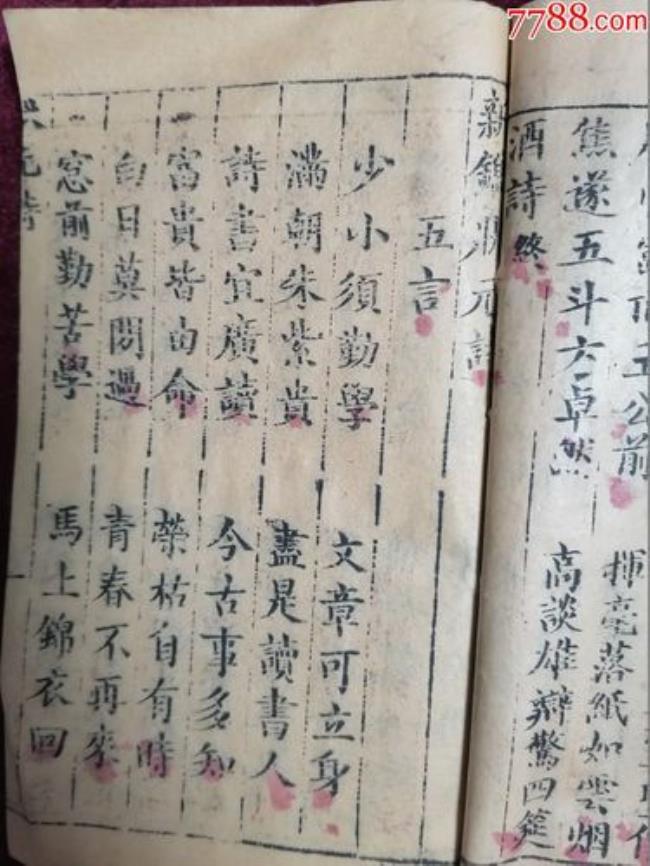 7788.com
王公前 揮毫落紙如雲烟
焦遂五斗方卓然 高談雄辯驚四筵
酒詩終
新鐫狀元詩
五言
少小須勤學 文章可立身
滿朝朱紫貴 盡是讀書人
詩書宜廣讀 今古事多知
富貴皆由命 榮枯自有時
白日莫閒過 青春不再來
窓前勤苦學 馬上錦衣回
元詩